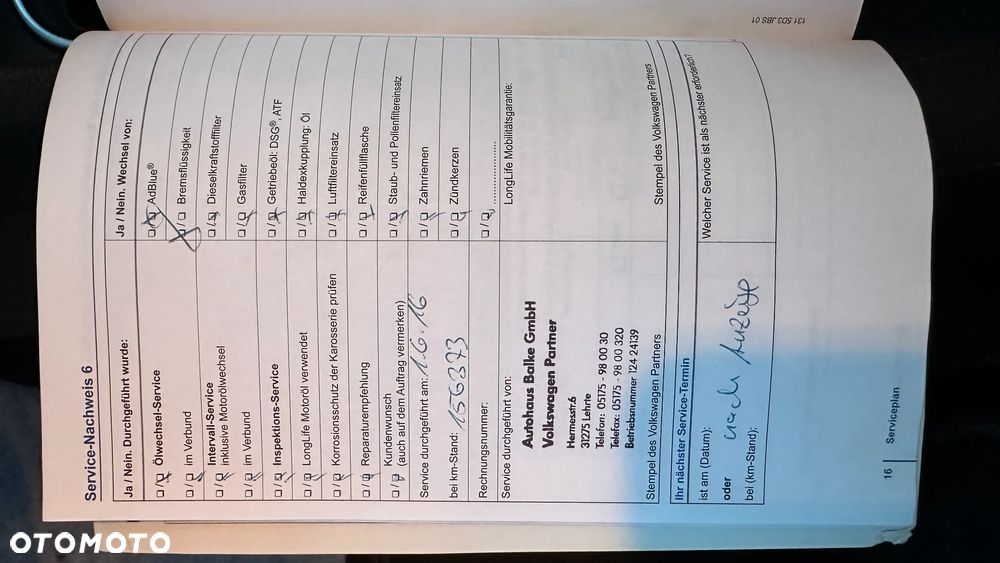 131.5D3.JBS.01
Service-Nachweis 6
Ja / Nein. Durchgeführt wurde:
☐/☐ Ölwechsel-Service
☐/☐ im Verbund
☐/☐ Intervall-Service
inklusive Motorölwechsel
☐/☐ im Verbund
☐/☐ Inspektions-Service
☐/☐ LongLife Motoröl verwendet
☐/☐ Korrosionsschutz der Karosserie prüfen
☐/☐ Reparaturempfehlung
☐/☐ Kundenwunsch
(auch auf dem Auftrag vermerken)
Service durchgeführt am: 1.6.16
bei km-Stand: 156373
Rechnungsnummer:
Service durchgeführt von:
Autohaus Balke GmbH
Volkswagen Partner
Hermesstr.6
31275 Lehrte
Telefon: 05175 - 98 00 30
Telefax: 05175 - 98 00 320
Betriebsnummer 124 24139
Stempel des Volkswagen Partners
Ja / Nein. Wechsel von:
☐/☐ AdBlue®
☐/☐ Bremsflüssigkeit
☐/☐ Dieselkraftstofffilter
☐/☐ Gasfilter
☐/☐ Getriebeöl: DSG®, ATF
☐/☐ Haldexkupplung: Öl
☐/☐ Luftfiltereinsatz
☐/☐ Reifenfüllflasche
☐/☐ Staub- und Pollenfiltereinsatz
☐/☐ Zahnriemen
☐/☐ Zündkerzen
☐/☐ ....................
LongLife Mobilitätsgarantie:
Stempel des Volkswagen Partners
Ihr nächster Service-Termin
ist am (Datum):
oder nach Anzeige
bei (km-Stand):
Welcher Service ist als nächster erforderlich?
16 Serviceplan
OTOMOTO